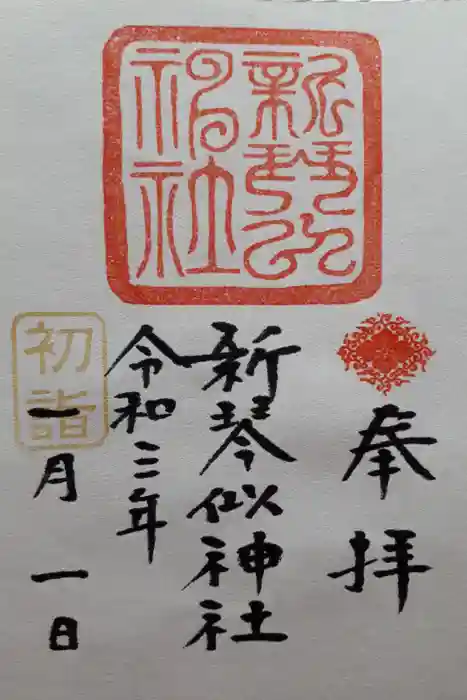 奉拝
新琴似神社
令和三年
一月一日
初詣
新琴似
神社